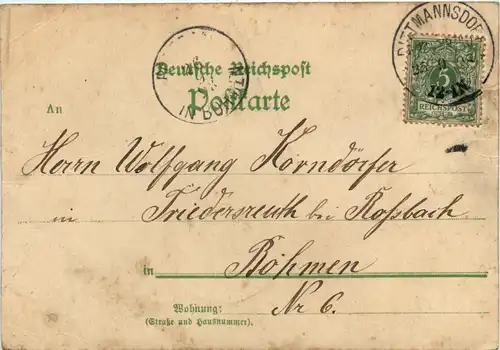 DITTMANNSDORF
Deutsche Reichspost
Postkarte
IN BÖHMEN
5
12-1N
REICHSPOST
An
Herrn Wolfgang Korndörfer
in Friedersreuth bei Roßbach
in Böhmen
Wohnung: Nr 6.
(Straße und Hausnummer).